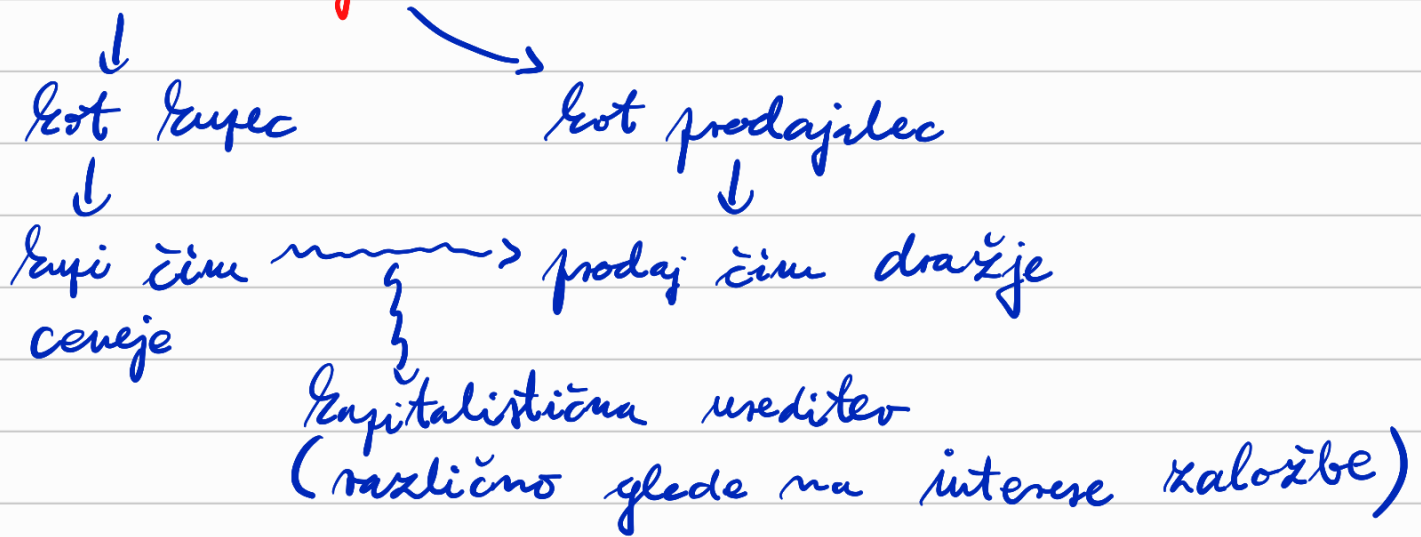 kot kupec kot prodajalec
kupi čim prodaj čim dražje
ceneje
kapitalistična ureditev
(različno glede na interese založbe)